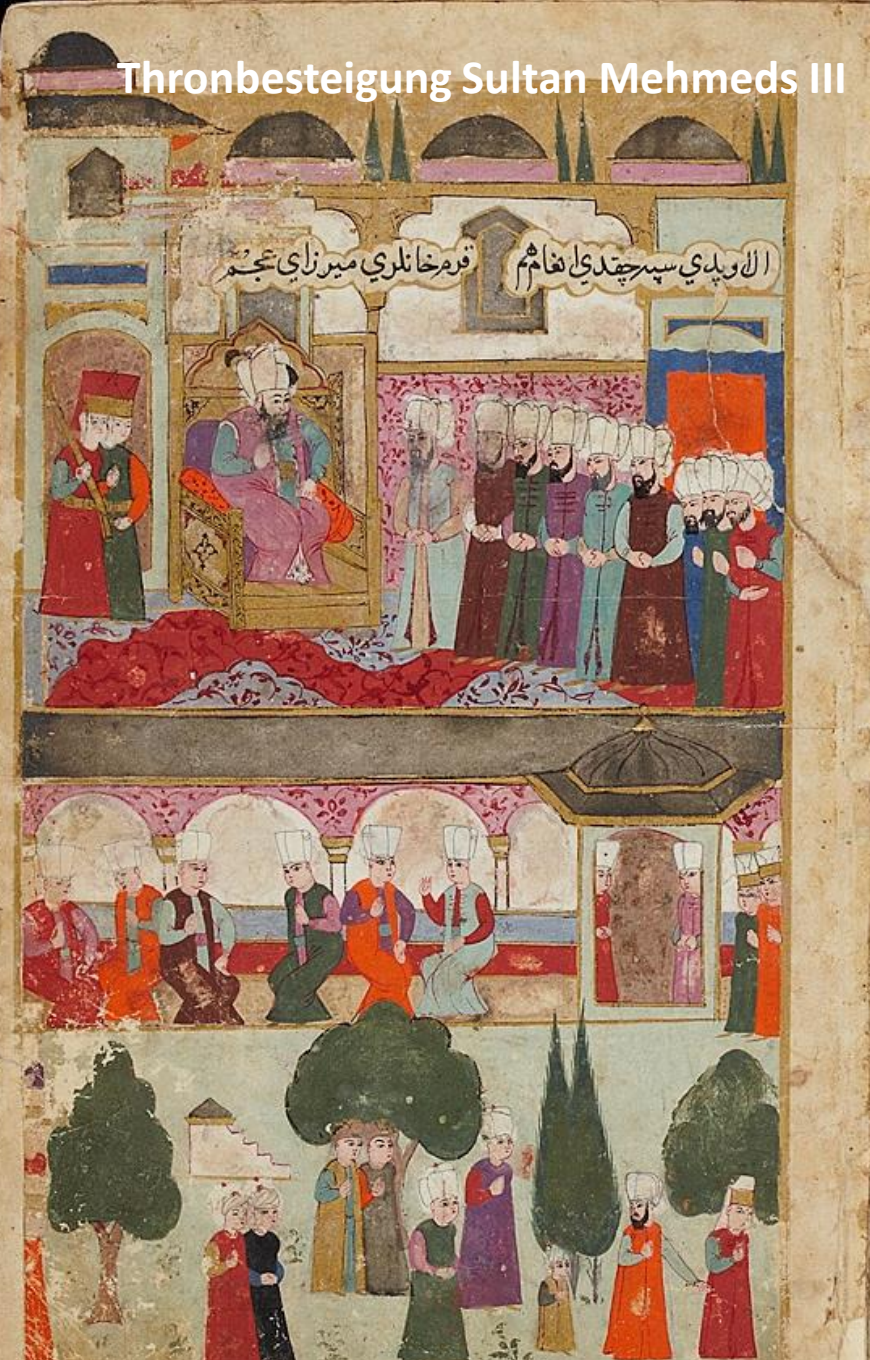 Thronbesteigung Sultan Mehmeds III
ال اوپدي سپه چقدي انعام هم قرم خانلري ميرزاي عجم